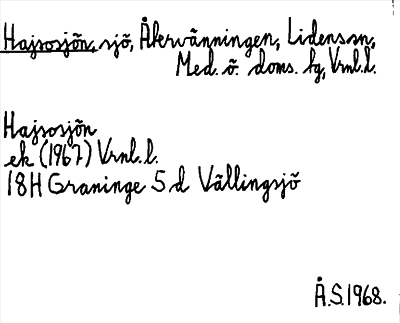 Hajsosjön, sjö, Åkervänningen, Lidens sn,
Med. ö. doms. tg, Vrnl. l.
Hajsosjön
ek (1967) Vrnl. l.
18H Graninge 5 d Vällingsjö
Å.S. 1968.